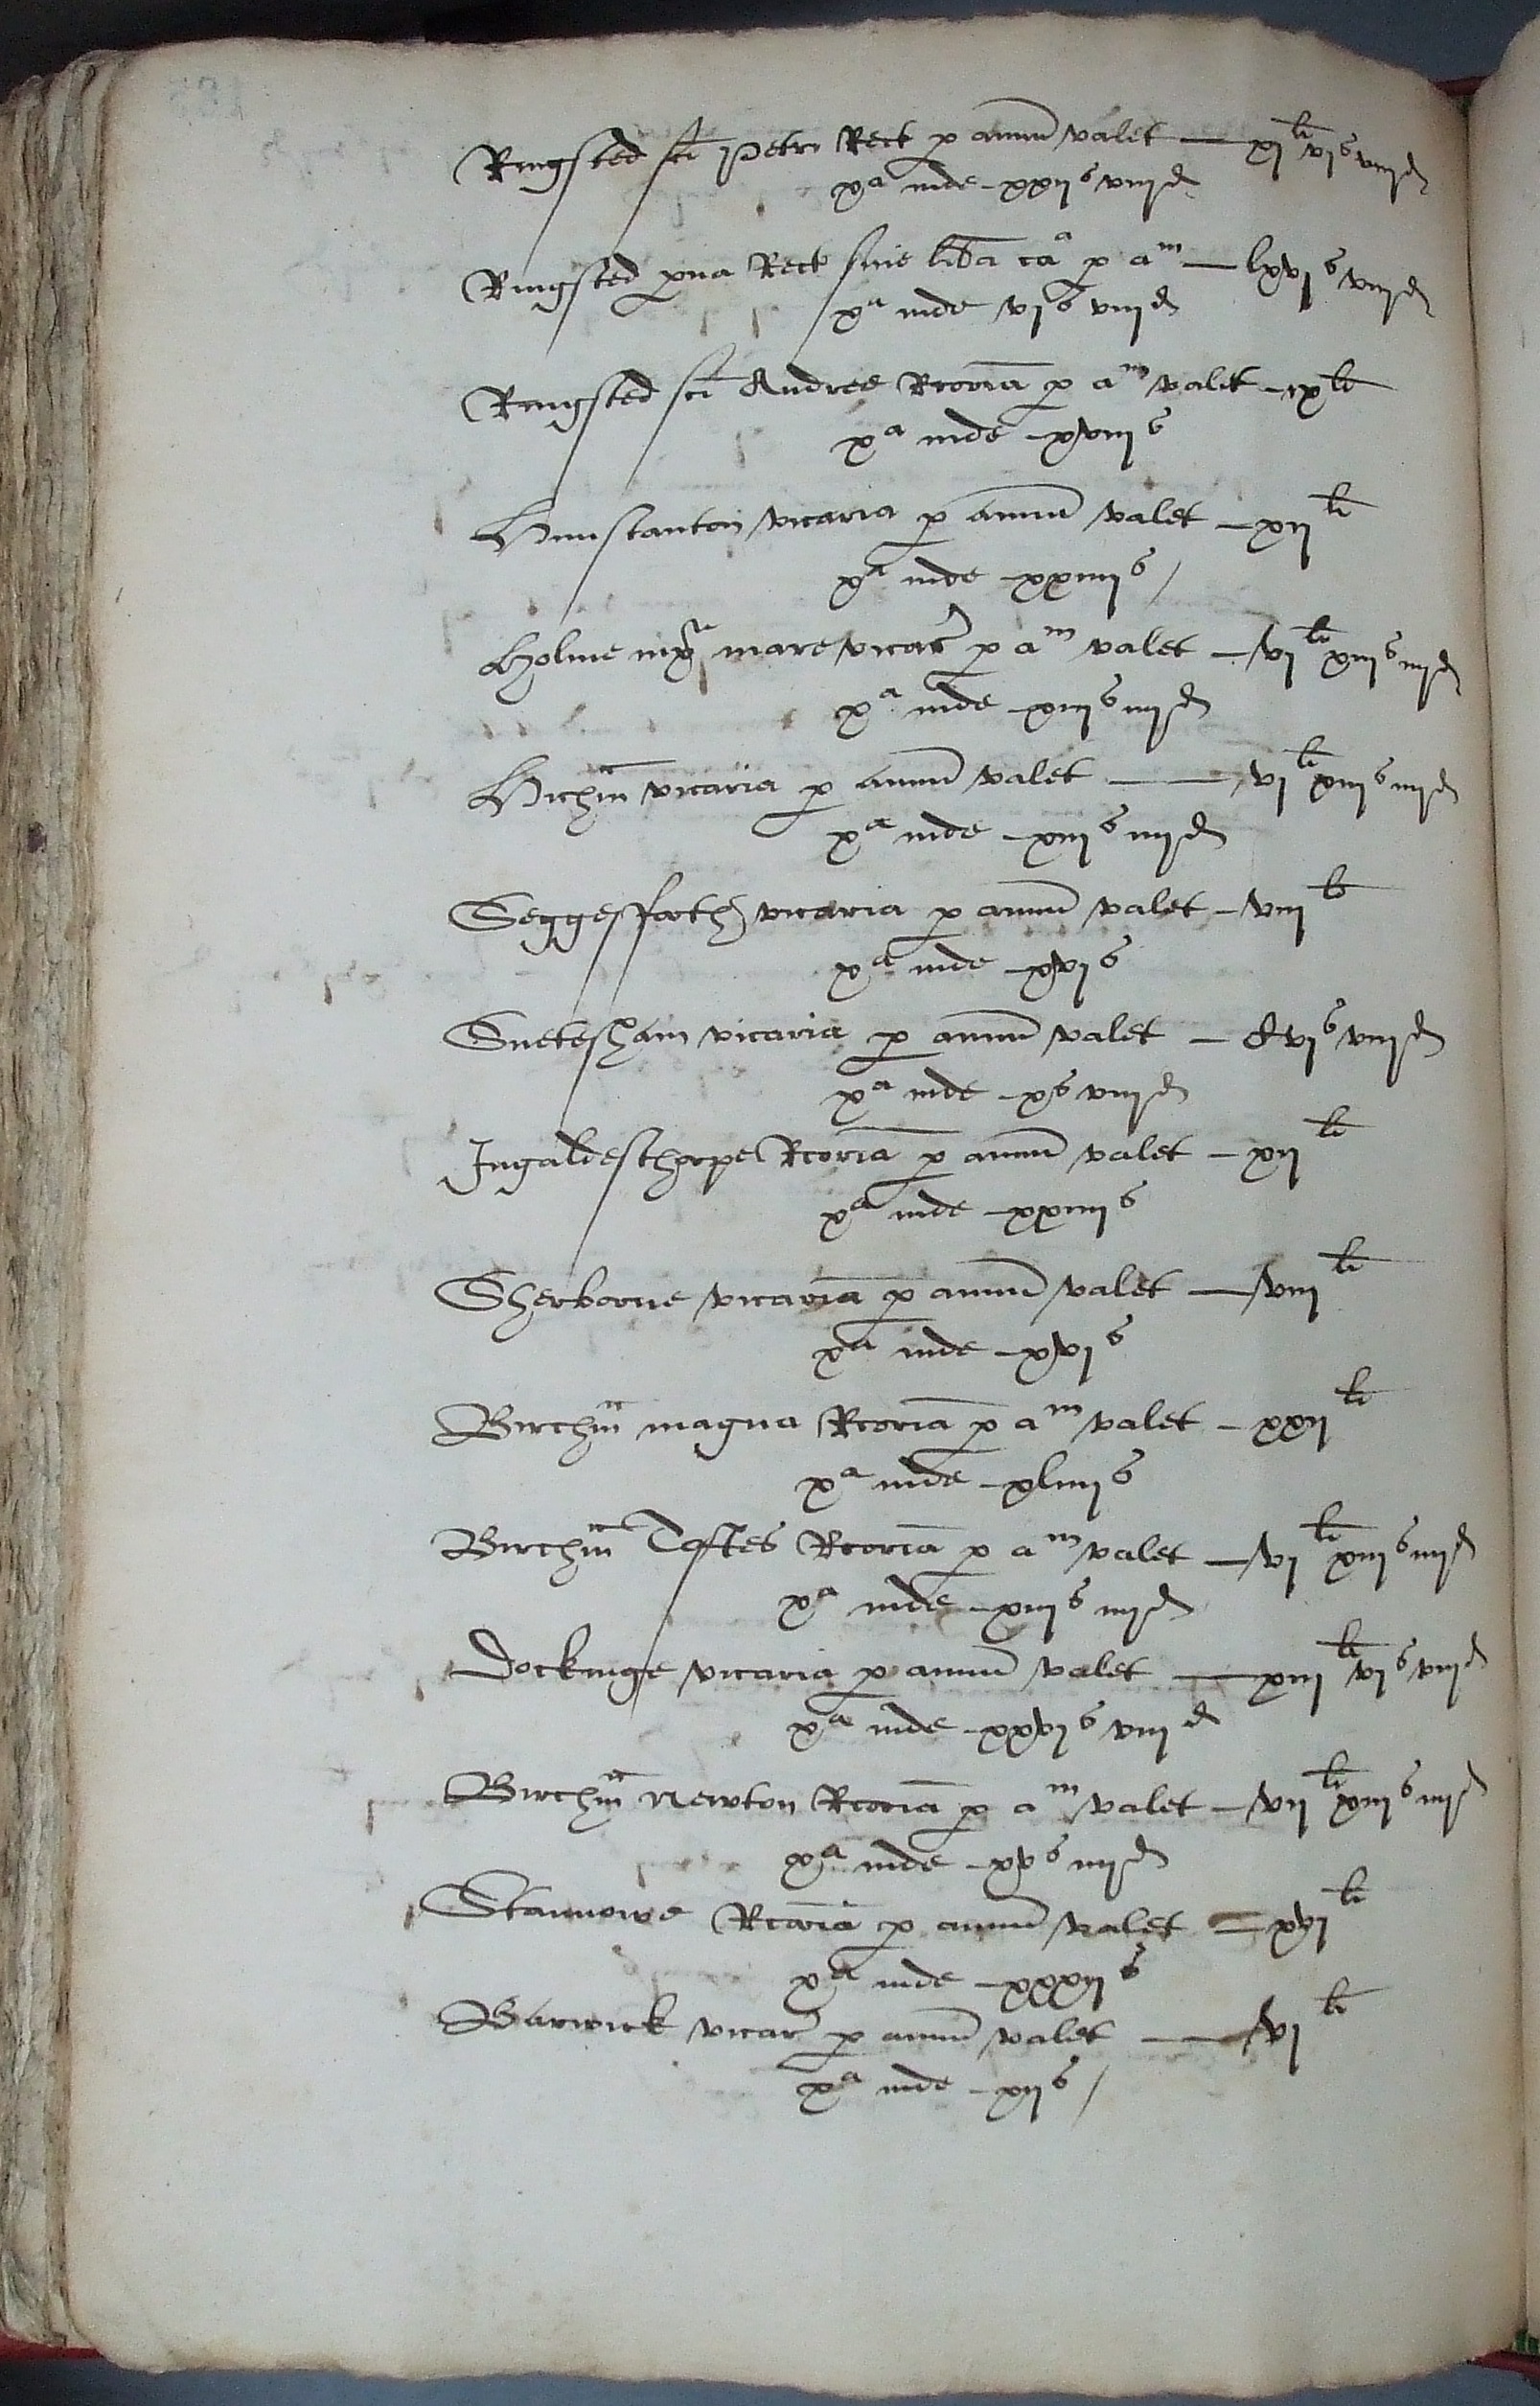 Ringsted sci Petri Rect p annu valet — xj li vj s viij d
xa inde - xxij s viij d
Ringsted pva Rect sive liba ca p am — lxvj s viij d
xa inde vj s viij d
Ringsted sci Andree Rcoria p am valet - ix li
xa inde - xviij s
Hunstanton vicaria p annu valet - xij li
xa inde - xxiiij s /
Holme iuxa mare vicar p am valet - vj li xiij s iiij d
xa inde - xiij s iiij d
Hichm vicaria p annu valet — vj li xiij s iiij d
xa inde - xiij s iiij d
Seggesforth vicaria p annu valet - viij li
xa inde - xvj s
Snetesham vicaria p annu valet - Cvj s viij d
xa inde - x s viij d
Ingaldesthorpe Rcoria p annu valet - xij li
xa inde - xxiiij s
Sherborne vicaria p annu valet — viij li
xa inde - xvj s
Birchm magna Rcoria p am valet - xxij li
xa inde - xliiij s
Birchm Toftes Rcoria p am valet - vj li xiij s iiij d
xa inde - xiij s iiij d
Dockinge vicaria p annu valet — xiij li vj s viij d
xa inde - xxvj s viij d
Birchm Newton Rcoria p am valet - vij li xiij s iiij d
xa inde - xv s iiij d
Stannowe Rcoria p annu valet - xvj li
xa inde - xxxij s
Barwick vicar p annu valet — vj li
xa inde - xij s /